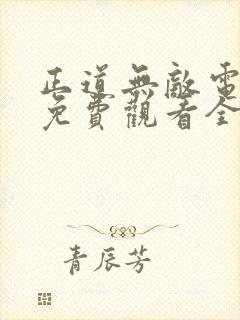 正道無敵電
免費觀看全
青辰芳